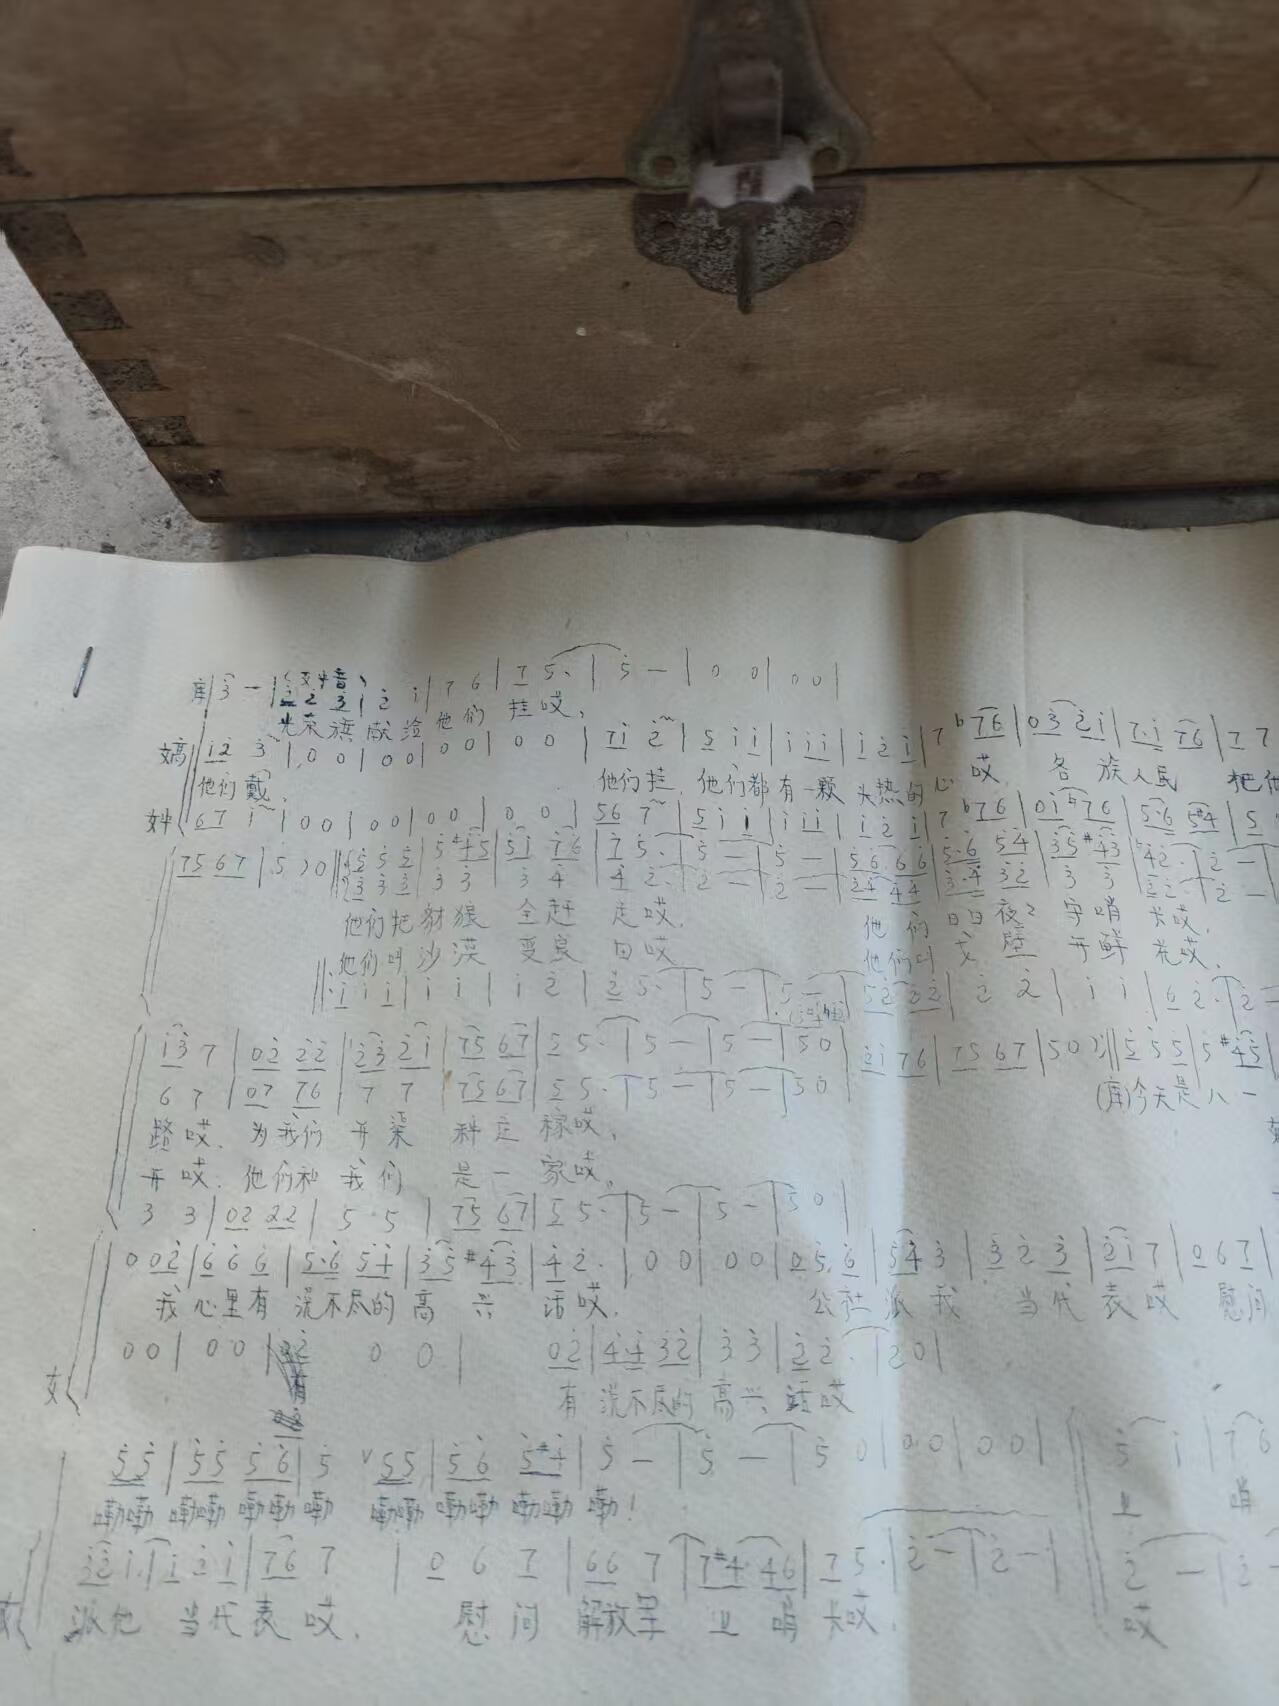 库 3 — | 2 2 3 | 2 i | 7 6 | 7 5· | 5 — | 0 0 | 0 0 |
光荣旗 献给 他们 挂哎,
女高 i 2 3 | 0 0 | 0 0 | 0 0 | 0 0 | 7 i 2 | 5 i i | i i i | i 2 i | 7 b7 6 | 0 3 2 i | 7· i 7 6 | 7 7
他们 戴, 他们 挂, 他们都 有一颗 火热的 心 哎 各族人民 把他
女中 6 7 i | 0 0 | 0 0 | 0 0 | 0 0 | 5 6 7 | 5 i i | i i i | i 2 i | 7 b7 6 | 0 i 7 6 | 5· 6 5 #4 | 5
7 5 6 7 | 5 0 | 5 5 5 | 5 #4 5 | 5 i 7 6 | 7 5· | 5 — | 5 — | 5 6 6 6 | 5· 6 5 4 | 3 5 #4 3 | 4 2· | 2 —
3 3 3 | 3 3 | 3 4 | 4 2· | 2 — | 2 — | 2 4 4 4 | 3· 4 3 2 | 3 3 | 2 2· | 2 —
他们把 豺狼 全赶 走哎, 他们 日日夜夜 守哨 卡哎,
他们叫 沙漠 变良 田哎, 他们叫 戈壁 开鲜 花哎,
i i i | i i | i 2 | 2 5· | 5 — | 5 — | 5 2 2 2 | 2 2 | i i | 6 2· | 2 —
i 3 7 | 0 2 2 2 | 2 3 2 i | 7 5 6 7 | 5 5· | 5 — | 5 — | 5 0 | 2 i 7 6 | 7 5 6 7 | 5 0 | 5 5 5 | 5 #4 5
6 7 | 0 7 7 6 | 7 7 | 7 5 6 7 | 5 5· | 5 — | 5 — | 5 0 (库)今天是 八一
路 哎, 为我们 开渠 种庄 稼哎,
开 哎, 他们和 我们 是一 家哎,
3 3 | 0 2 2 2 | 5 5 | 7 5 6 7 | 5 5· | 5 — | 5 — | 5 0 |
0 0 2 | 6 6 6 | 5· 6 5 4 | 3 5 #4 3 | 4 2· | 0 0 | 0 0 | 0 5 6 | 5 4 3 | 3 2 3 | 2 i 7 | 0 6 7 |
我 心里有 说不尽的 高兴 话哎, 公社 派我 当代表哎 慰问
女 0 0 | 0 0 | 0 0 | 0 2 | 4 4 3 2 | 3 3 | 2 2· | 2 0 |
有 说不尽的 高兴 话哎
5 5 | 5 5 5 6 | 5 5 5 | 5 6 5 #4 | 5 — | 5 — | 5 0 | 0 0 | 0 0 | 5 i | 7 6
嘞嘞 嘞嘞 嘞嘞 嘞 嘞嘞 嘞嘞 嘞嘞 嘞! 卫 哨
女 3 2 i· | i 2 i | 7 6 7 | 0 6 7 | 6 6 7 | 7 #4· 4 6 | 7 5· | 2 — | 2 — | 2 — | 2 —
派他 当代表 哎, 慰问 解放军 卫哨 卡哎, 哎